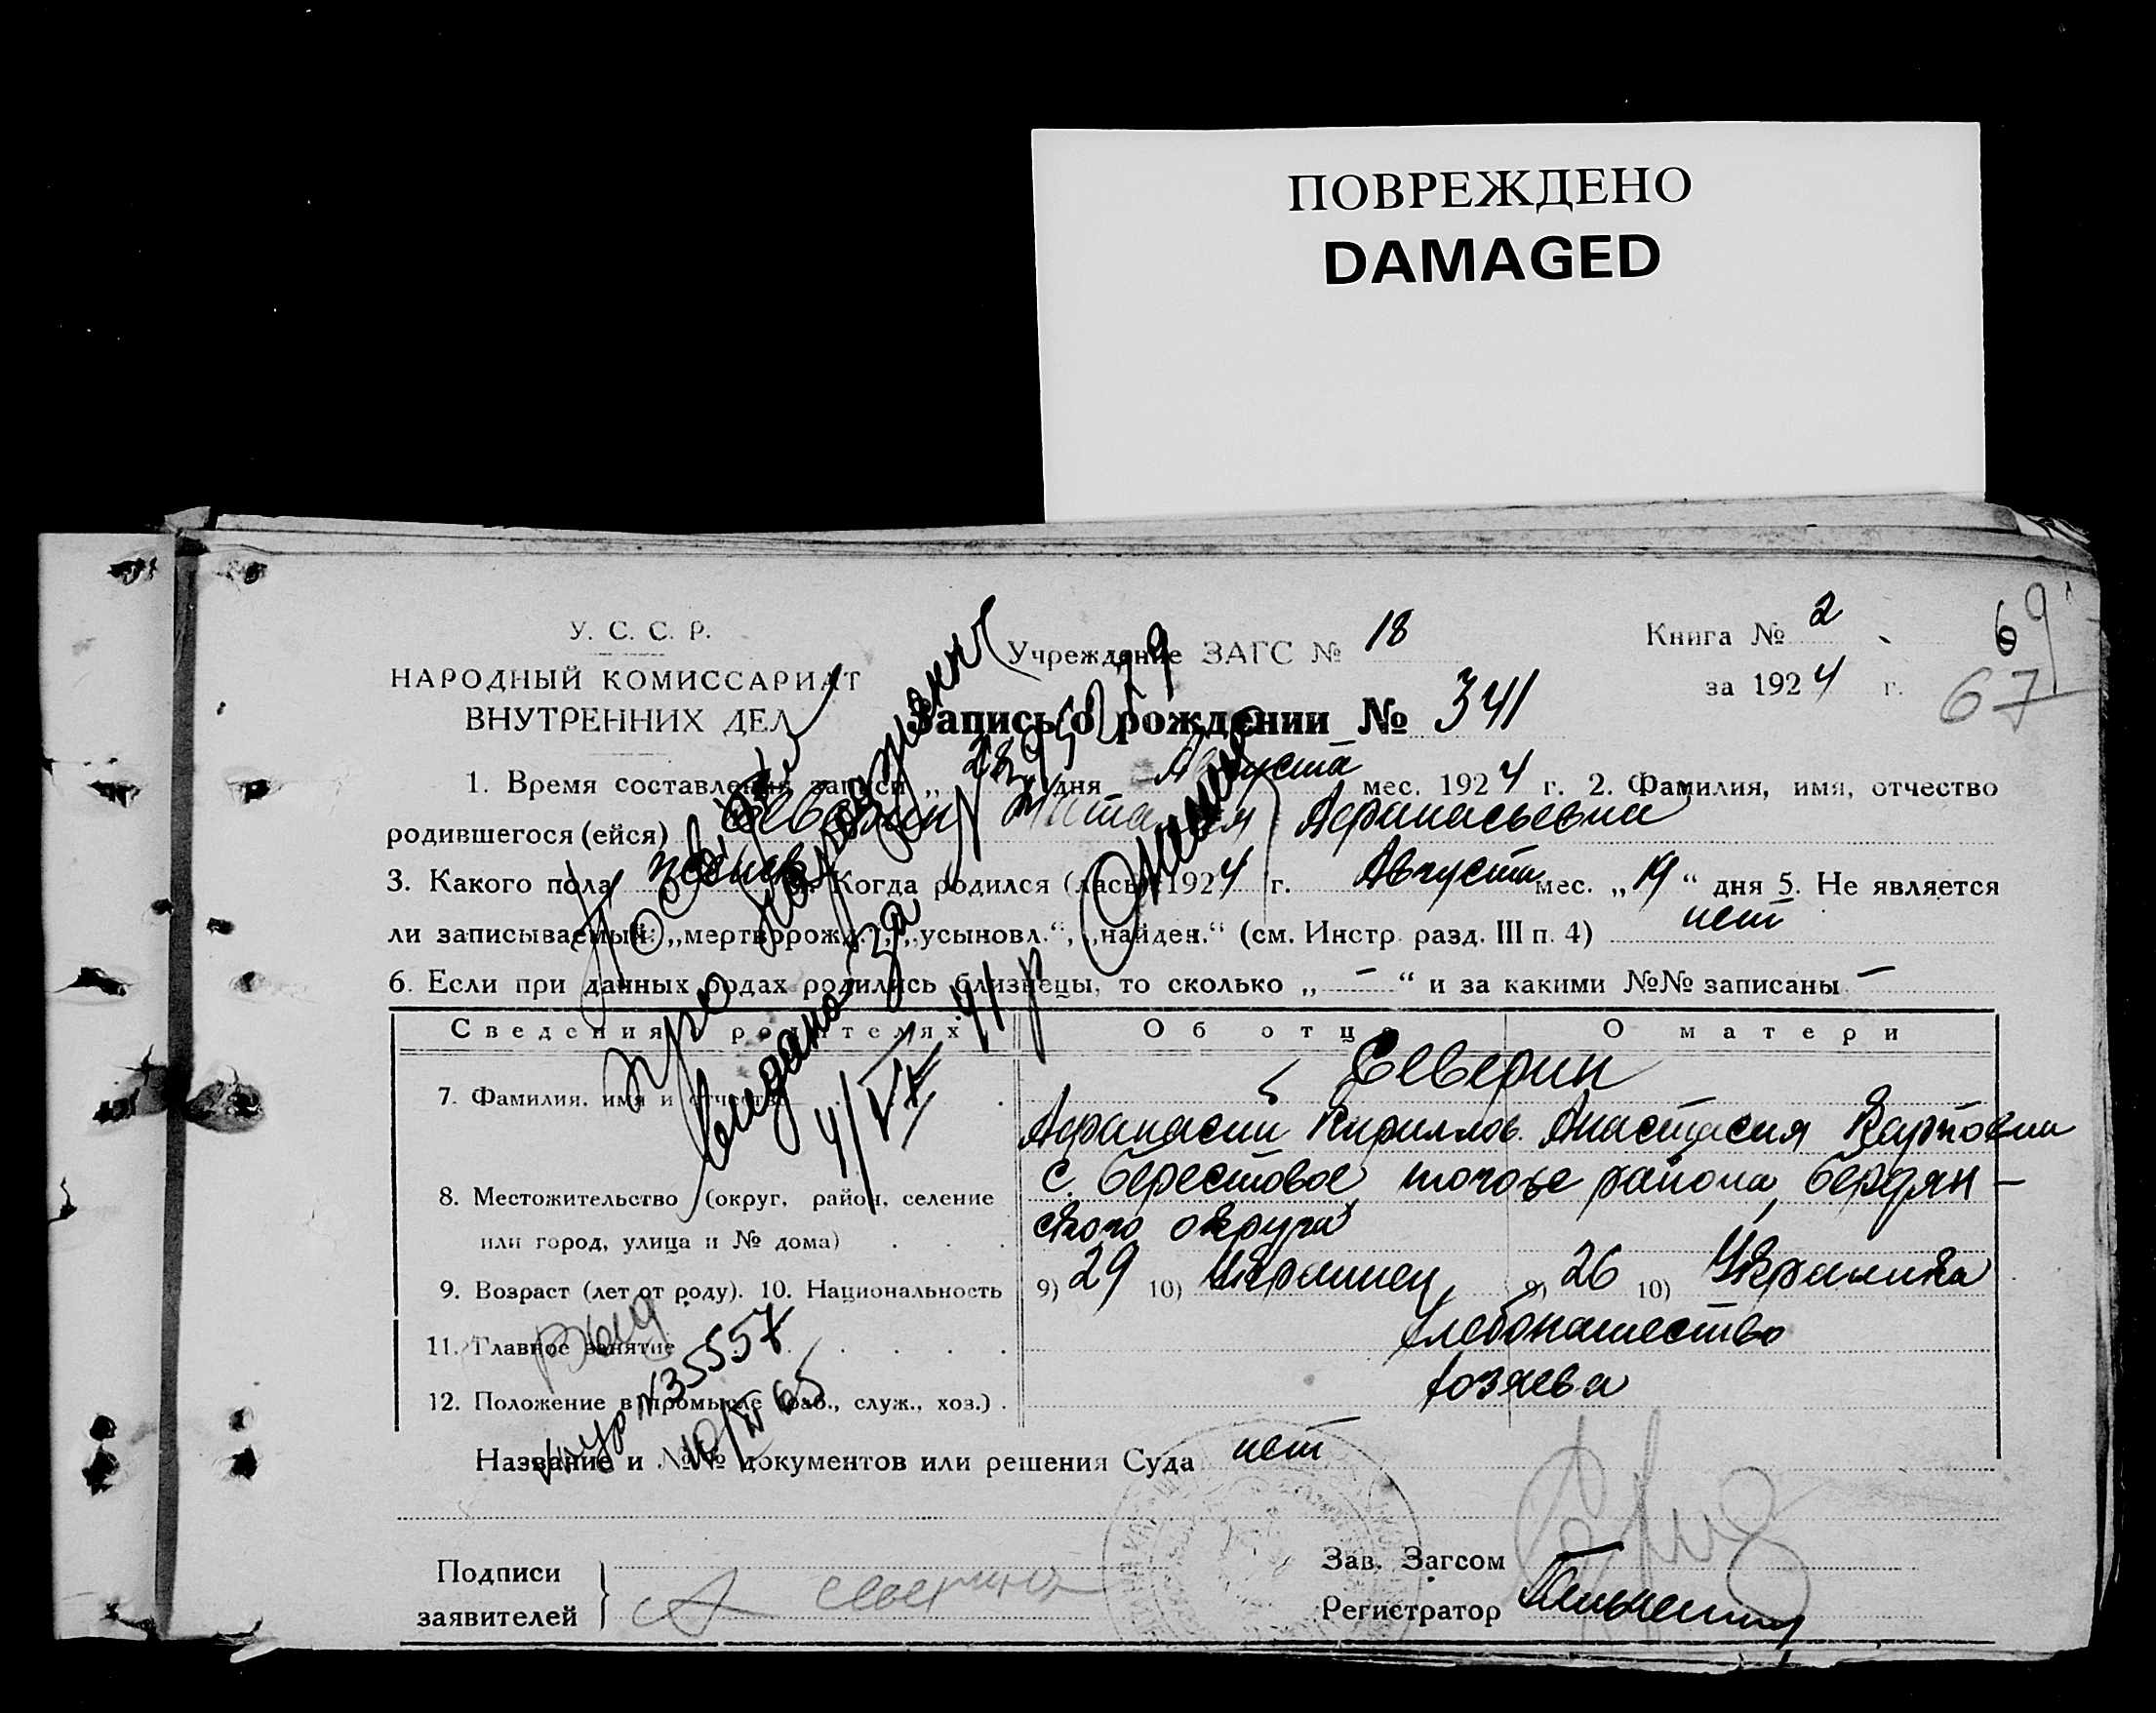 ПОВРЕЖДЕНО
DAMAGED
У. С. С. Р.
НАРОДНЫЙ КОМИССАРИАТ
ВНУТРЕННИХ ДЕЛ
Учреждение ЗАГС № 18
Книга № 2
за 1924 г.
69
67
Запись о рождении № 341
1. Время составления записи „28“ дня Августа мес. 1924 г. 2. Фамилия, имя, отчество
родившегося (ейся) Северин Афанасьевна
3. Какого пола женск 4. Когда родился (лась) 1924 г. Августа мес. „19“ дня 5. Не является
ли записываемый: „мертворожд.“, „усыновл.“, „найден.“ (см. Инстр. разд. III п. 4) нет
6. Если при данных родах родились близнецы, то сколько „—“ и за какими №№ записаны —
Сведения о родителях
Об отце
О матери
Северин
7. Фамилия, имя и отчество
Афанасий Кириллов. Анастасия Карповна
8. Местожительство (округ, район, селение
или город, улица и № дома)
с. Берестовое, того же района, Бердян-
ского округа
9. Возраст (лет от роду). 10. Национальность
9) 29 10) Украинец 9) 26 10) Украинка
11. Главное занятие
хлебопашество
12. Положение в промысле (раб., служ., хоз.)
хозяева
Название и №№ документов или решения Суда нет
Подписи
заявителей
А Северин
Зав. Загсом
Регистратор
Посвідку
про народження
видано за №
4/VII 41 р
№ 35557
10/IV 65